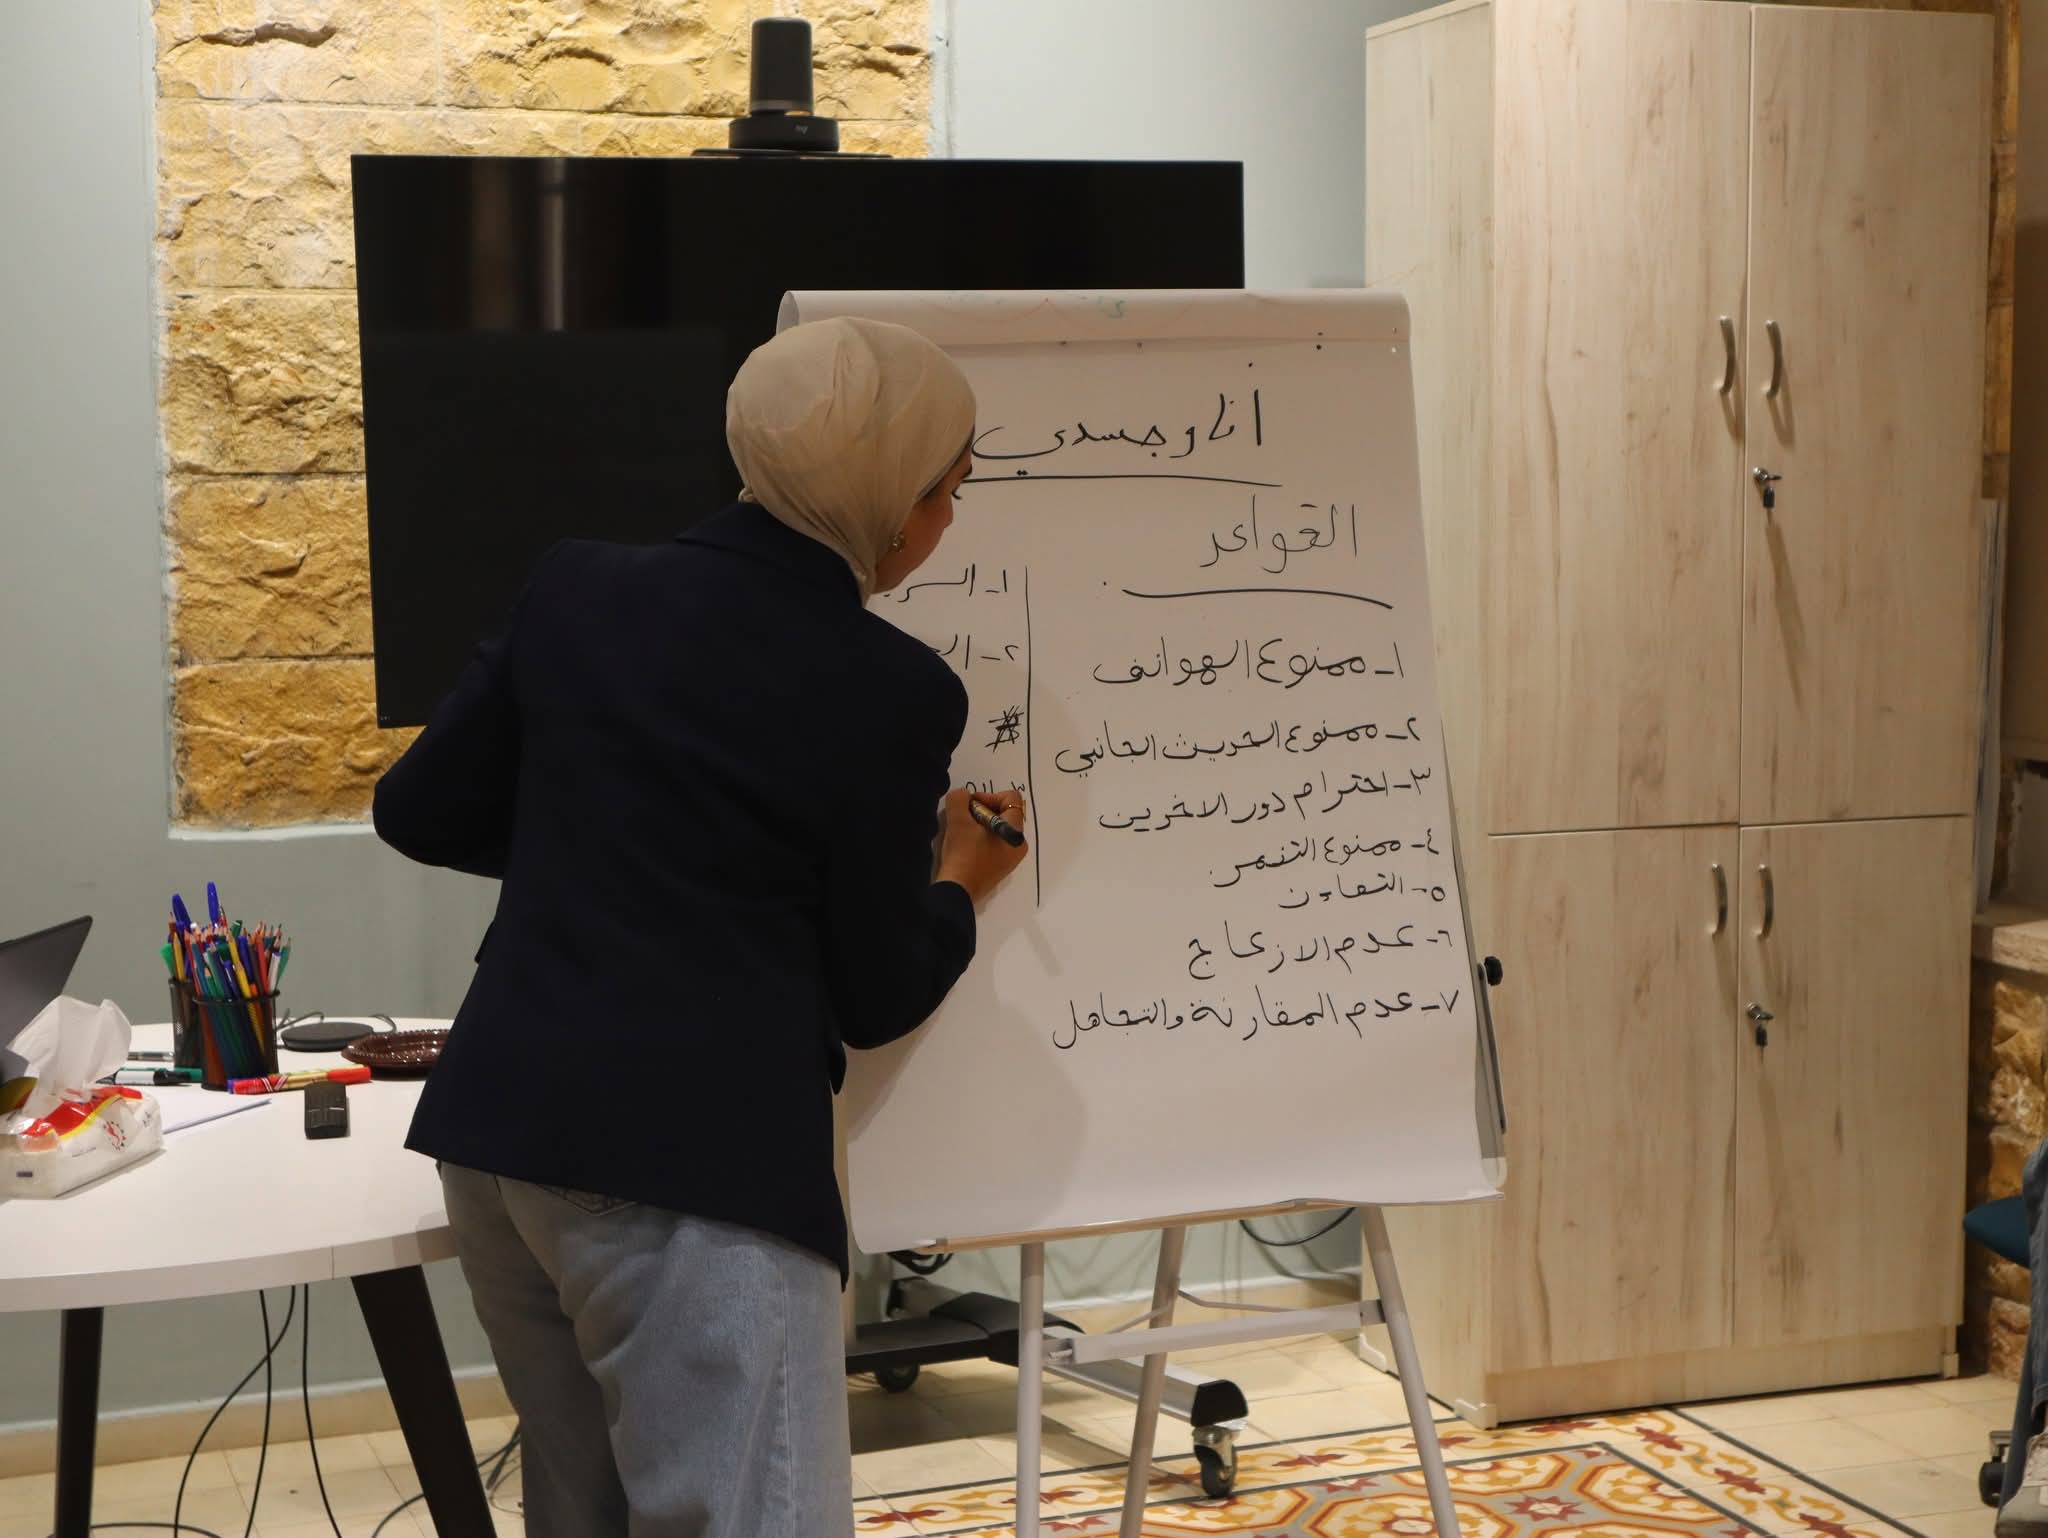 أنا وجسدي
القواعد
١- ممنوع الهواتف
٢- ممنوع الحديث الجانبي
٣- احترام دور الاخرين
٤- ممنوع التنمر
٥- التعاون
٦- عدم الازعاج
٧- عدم المقارنة والتجاهل
١-
٢-
٣-